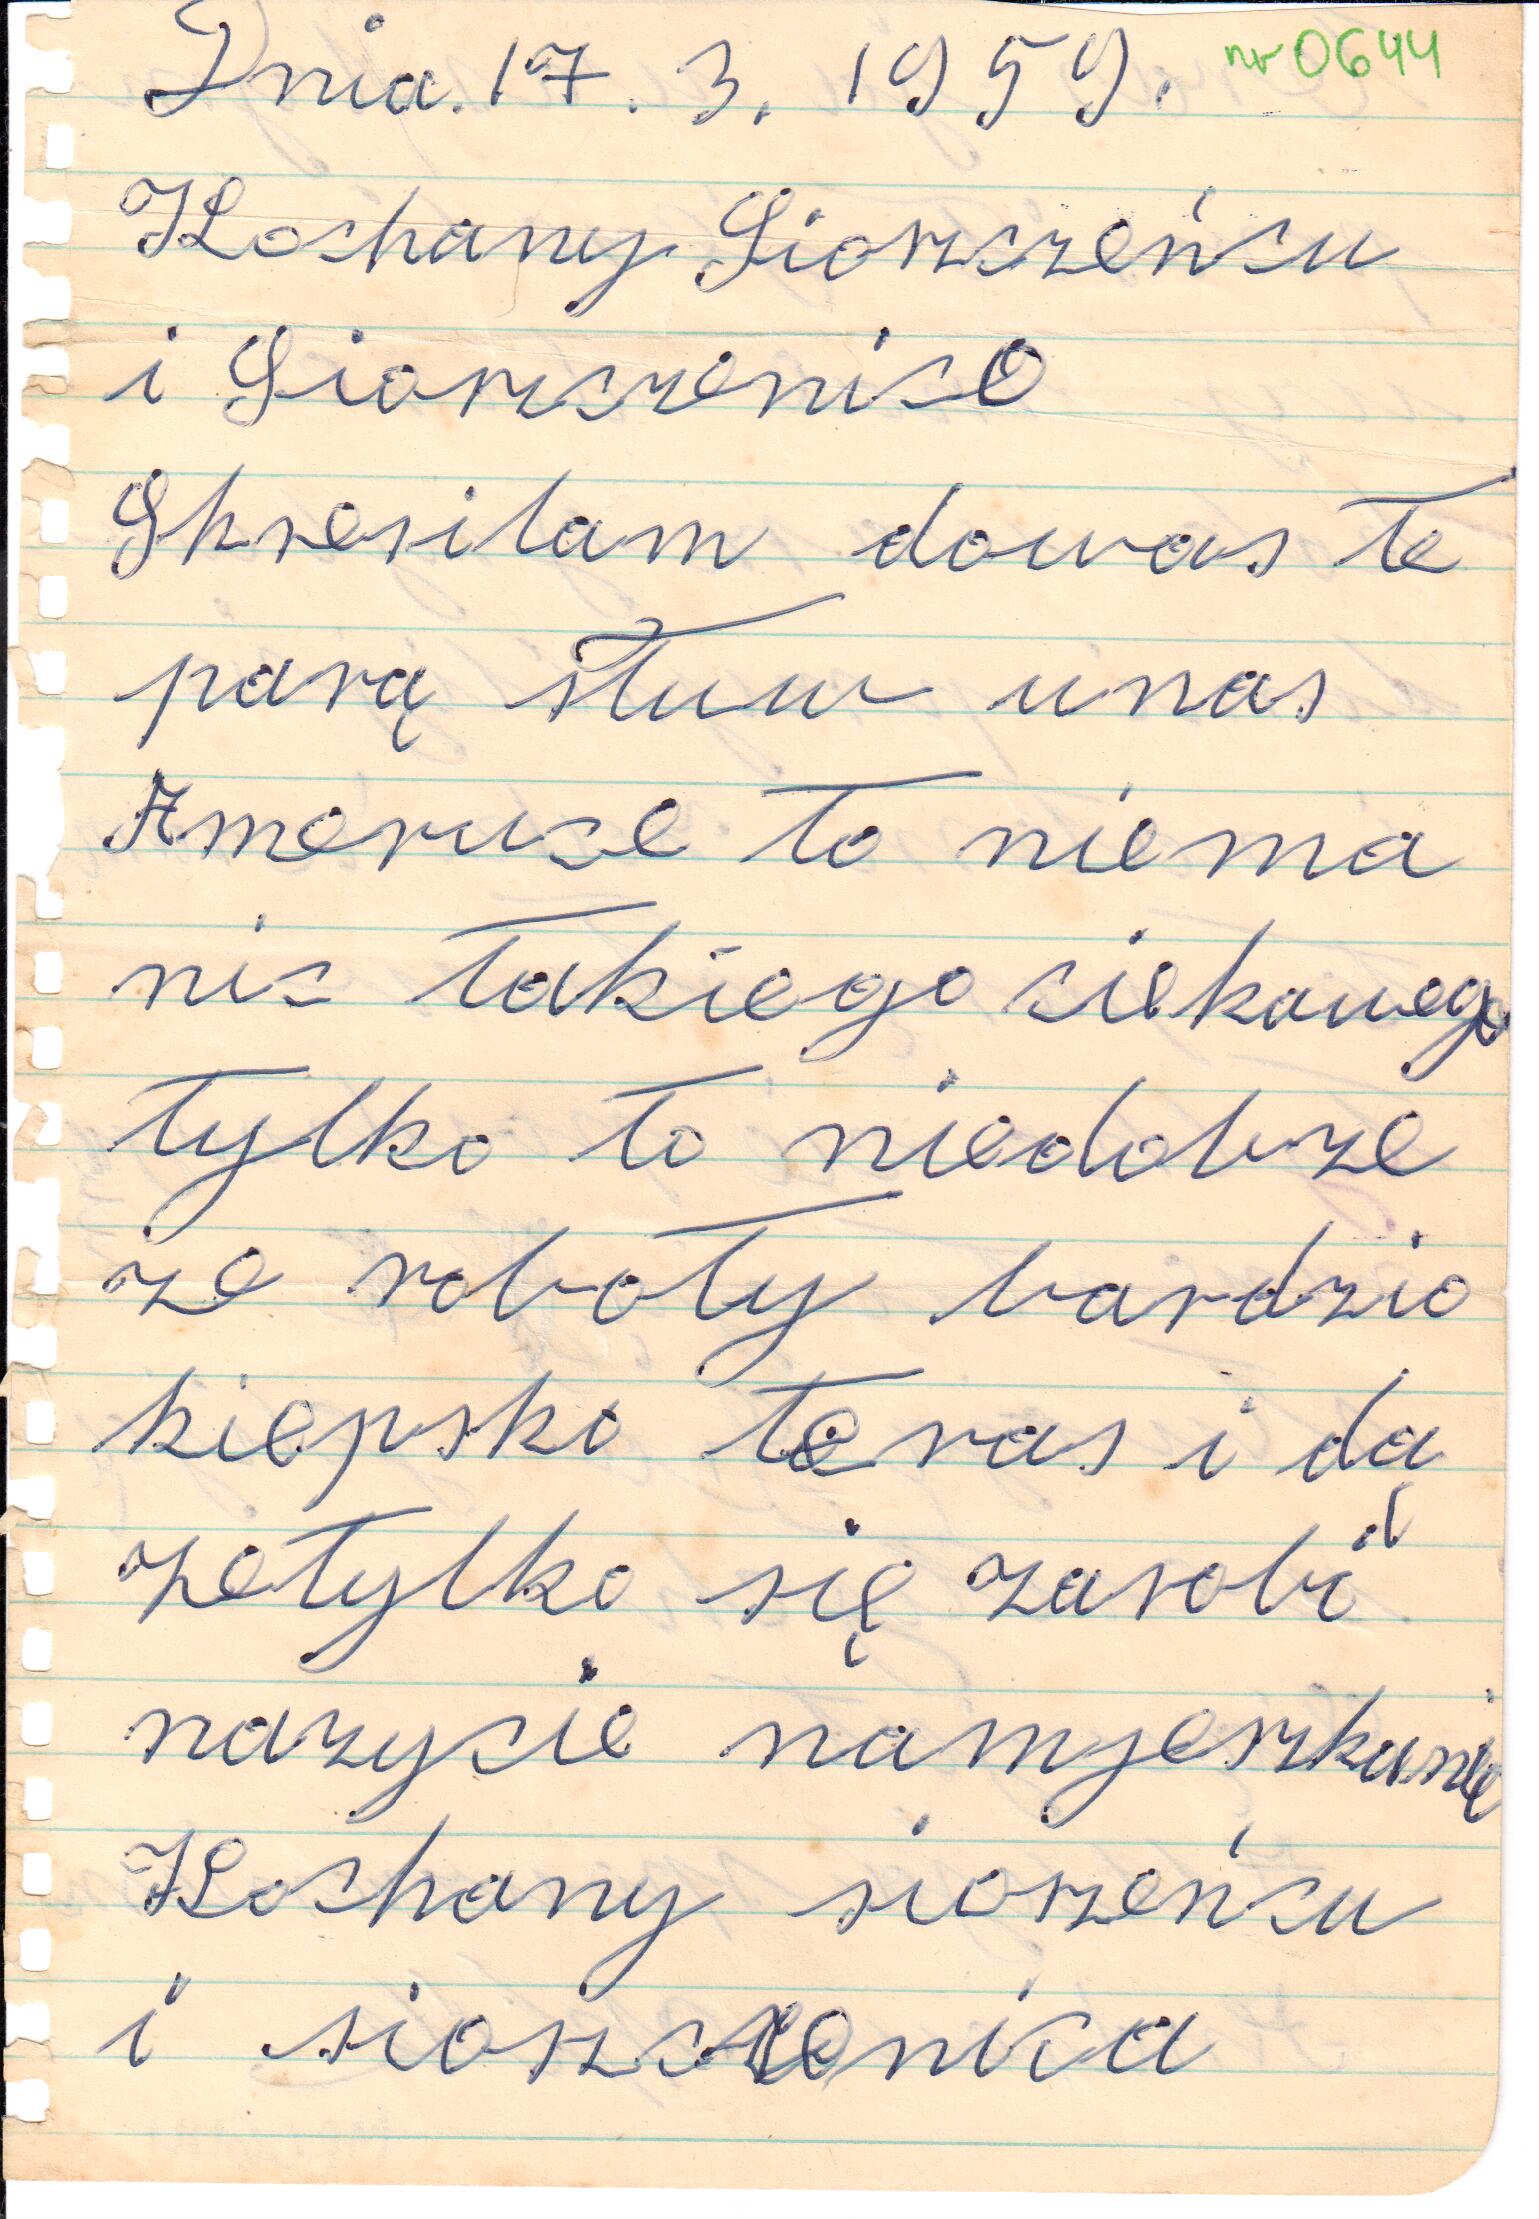 Dnia. 17. 3. 1959. nr 0644
Kochany Siorszeńcu
i Siorszenico
Skresilam dowas te
parą stuw unas
Ameryce to niema
nic takiego ciekawego
tylko to niedobze
ze roboty bardzio
kiepsko teras i dą
zetylko się zarobi
nazycie namjeszkanie
Kochany siorzeńcu
i siorszenica